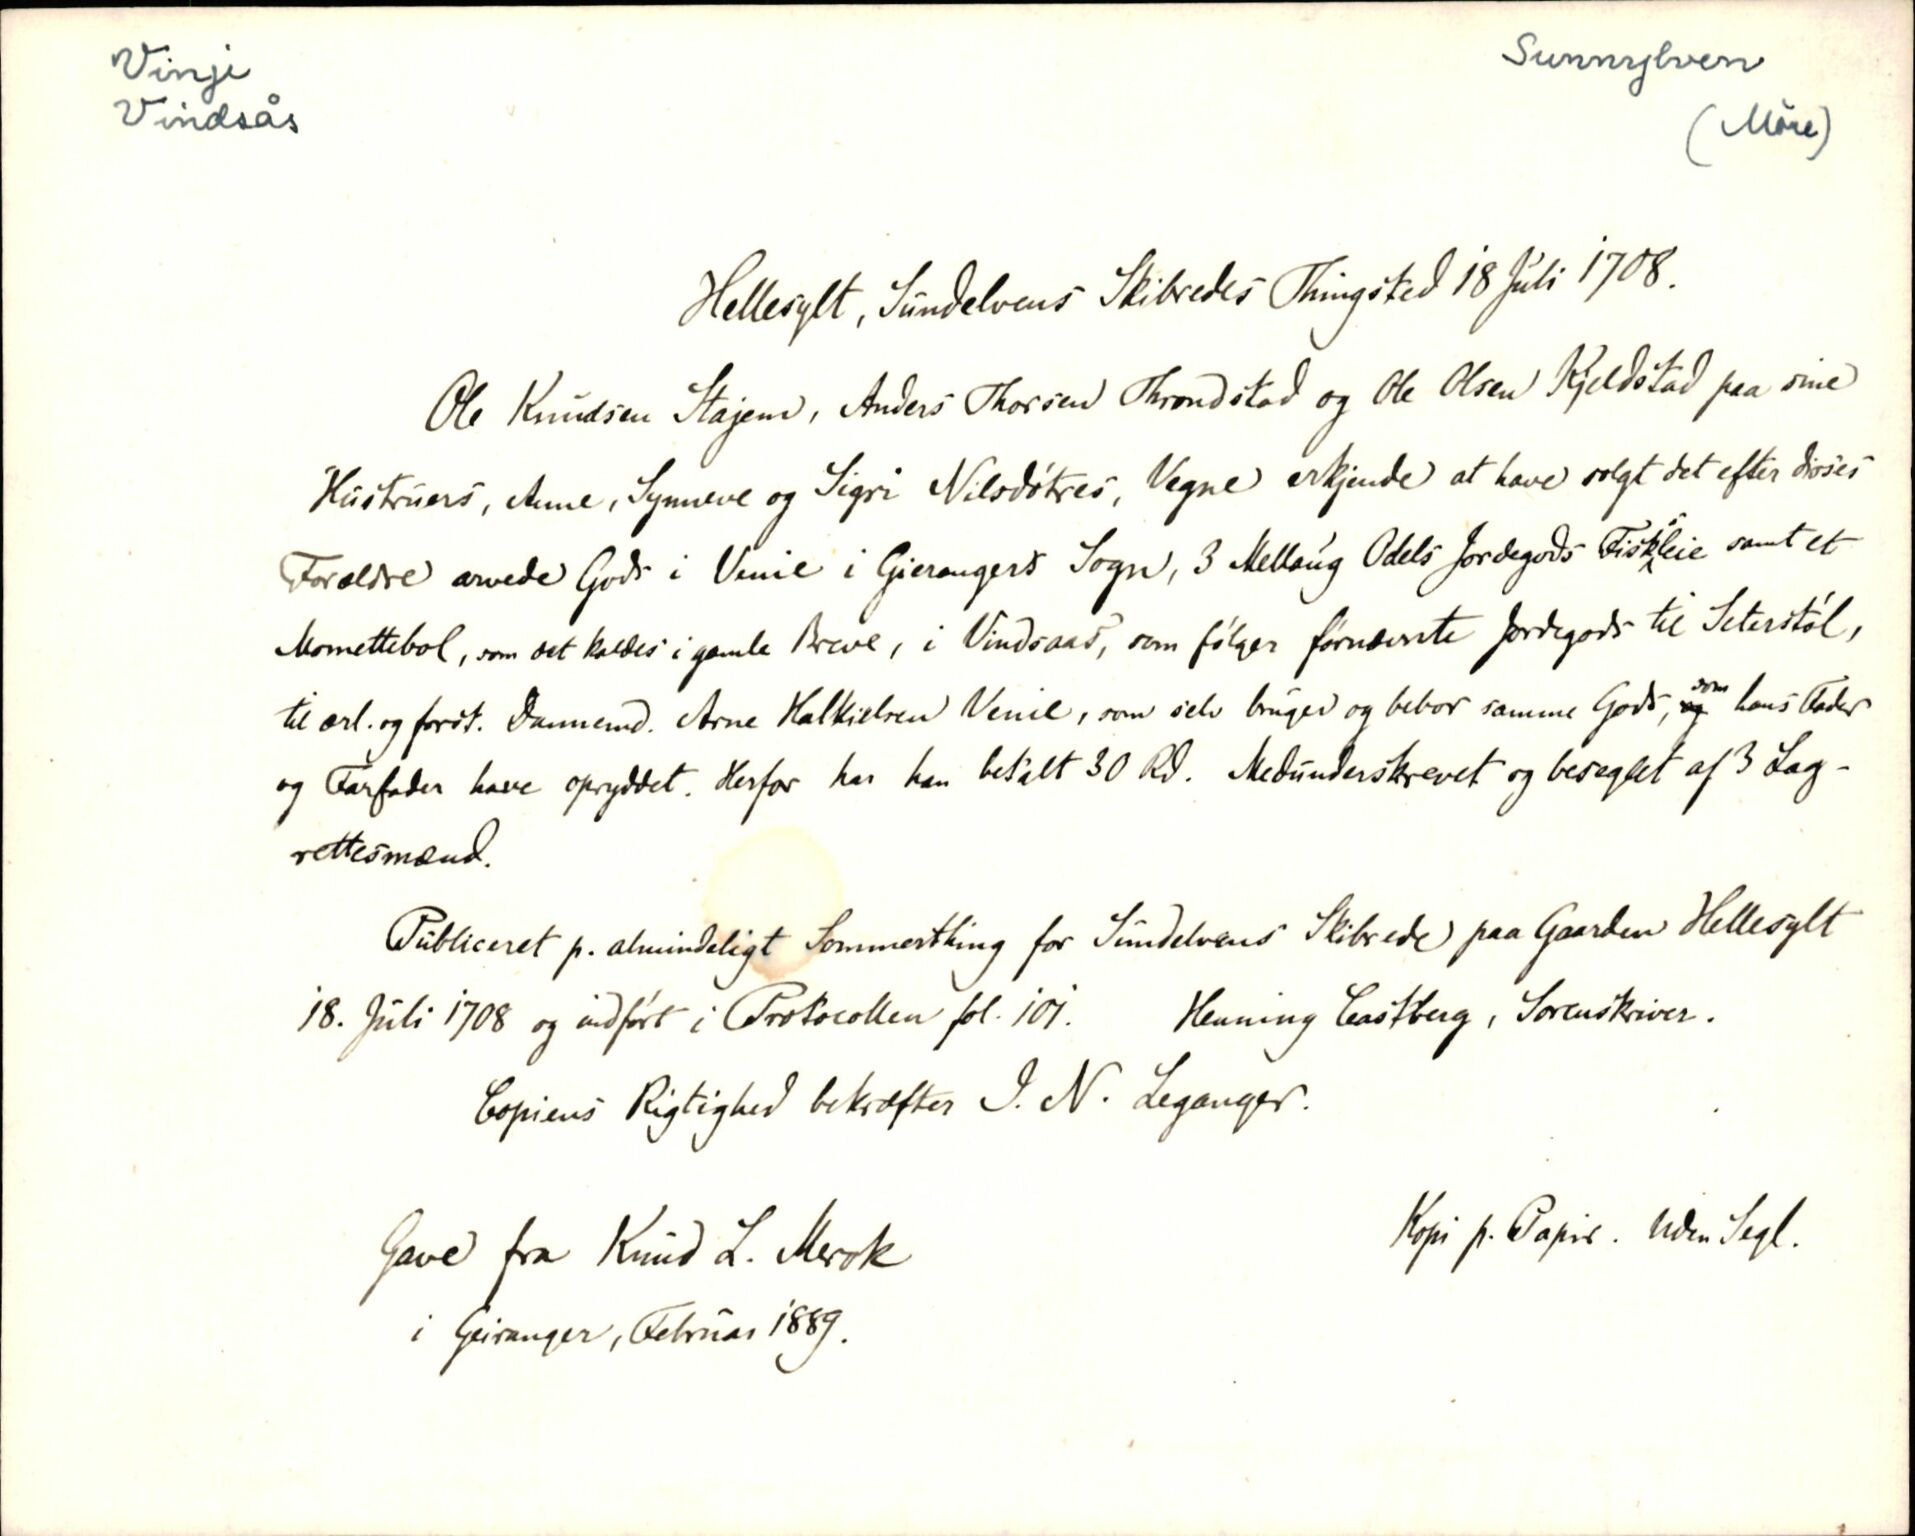 Vinje
Vindsås
Sunnylven
(Møre)
Hellesylt, Sundelvens Skibredes Thingsted 18 Juli 1708.
Ole Knudsen Stajem, Anders Thorsen Throndstad og Ole Olsen Kjeldstad paa sine
Hustruers, Anne, Synneve og Sigri Nilsdøtres, Vegne erkjende at have solgt det efter disses
Forældre arvede Gods i Venie i Gierangers Sogn, 3 Mellaug Odels Jordegods Fiskeleie samt et
Momettebol, som det kaldes i gamle Breve, i Vindsaas, som følger førnævnte Jordegods til Seterstøl,
til ærl. og forst. Dannemd. Arne Halkielsen Venie, som selv bruger og bebor samme Gods, som hans Fader
og Farfader have opryddet. Herfor har han betalt 30 Rd. Medunderskrevet og beseglet af 3 Lag-
rettesmænd.
Publiceret p. almindeligt Sommerthing for Sundelvens Skibrede paa Gaarden Hellesylt
18. Juli 1708 og indført i Protocollen fol. 101. Henning Castberg, Sorenskriver.
Copiens Rigtighed bekræfter J. N. Leganger.
Gave fra Knud L. Merok
i Geiranger, Februar 1889.
Kopi p. Papir. Uden Segl.